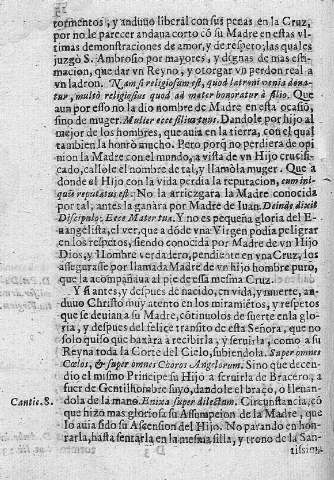 tormentos, y anduuo liberal con sus penas en la Cruz,
por no le parecer andaua corto cō su Madre en estas vl
timas demonstraciones de amor, y de respeto, las quales
juzgò S. Ambrosio por mayores, y dignas de mas esti-
macion, que dar vn Reyno, y otorgar vn perdon real a
vn ladron. Nam si religiosum est, quod latroni venia dona-
tur, multò religiosius quod ad mater honoratur à filio. Que
aun por esso no la dio nombre de Madre en esta ocasiō,
sino de muger. Mulier ecce filius tuus. Dandole por hijo al
mejor de los hombres, que auia en la tierra, con el qual
tambien la honrò mucho. Pero porq̄ no perdiera de opi-
nion la Madre con el mundo, a vista de vn Hijo crucifi-
cado, callole el nombre de tal, y llamòla muger. Que a
donde el Hijo con la vida perdia la reputacion, cum ini-
quis reputatus est: No la arriezgara la Madre conocida
por tal, antes la ganàra por Madre de Iuan. Deinde dixit
Discipulo: Ece Mater tua. Y no es pequeña gloria del E-
uangelista, el ver, que a dōde vna Virgen podia peligrar
en los respetos, siendo conocida por Madre de vn Hijo
Dios, y Hombre verdadero, pendiente en vna Cruz, los
assegurasse por llamada Madre de vn hijo hombre puro,
que la acompañaua al pie de essa mesma Cruz.
Y si antes, y despues de nacido, en vida, y muerte, an-
duuo Christo muy atento en los miramiētos, y respetos
que se deuian a su Madre, cōtinuòlos de suerte en la glo-
ria, y despues del felice transito de esta Señora, que no
solo quiso que baxàra a recibirla, y seruirla, como a su
Reyna toda la Corte del Cielo, subiendola. Super omnes
Cœlos, & super omnes Choros Angelorum. Sino que decen-
dio el mismo Principe su Hijo a seruirla de Bracero, a
fuer de Gentilhombre suyo, dandole el braço, o lleuan-
Cantic. 8. dola de la mano. Enixa super dilectum. Circunstācia, cō
que hizo mas gloriosa su Assumpcion de la Madre, que
lo auia sido su Ascension del Hijo. No parando en hon-
rarla, hasta sentarla en la mesma silla, y trono de la San-
tissima